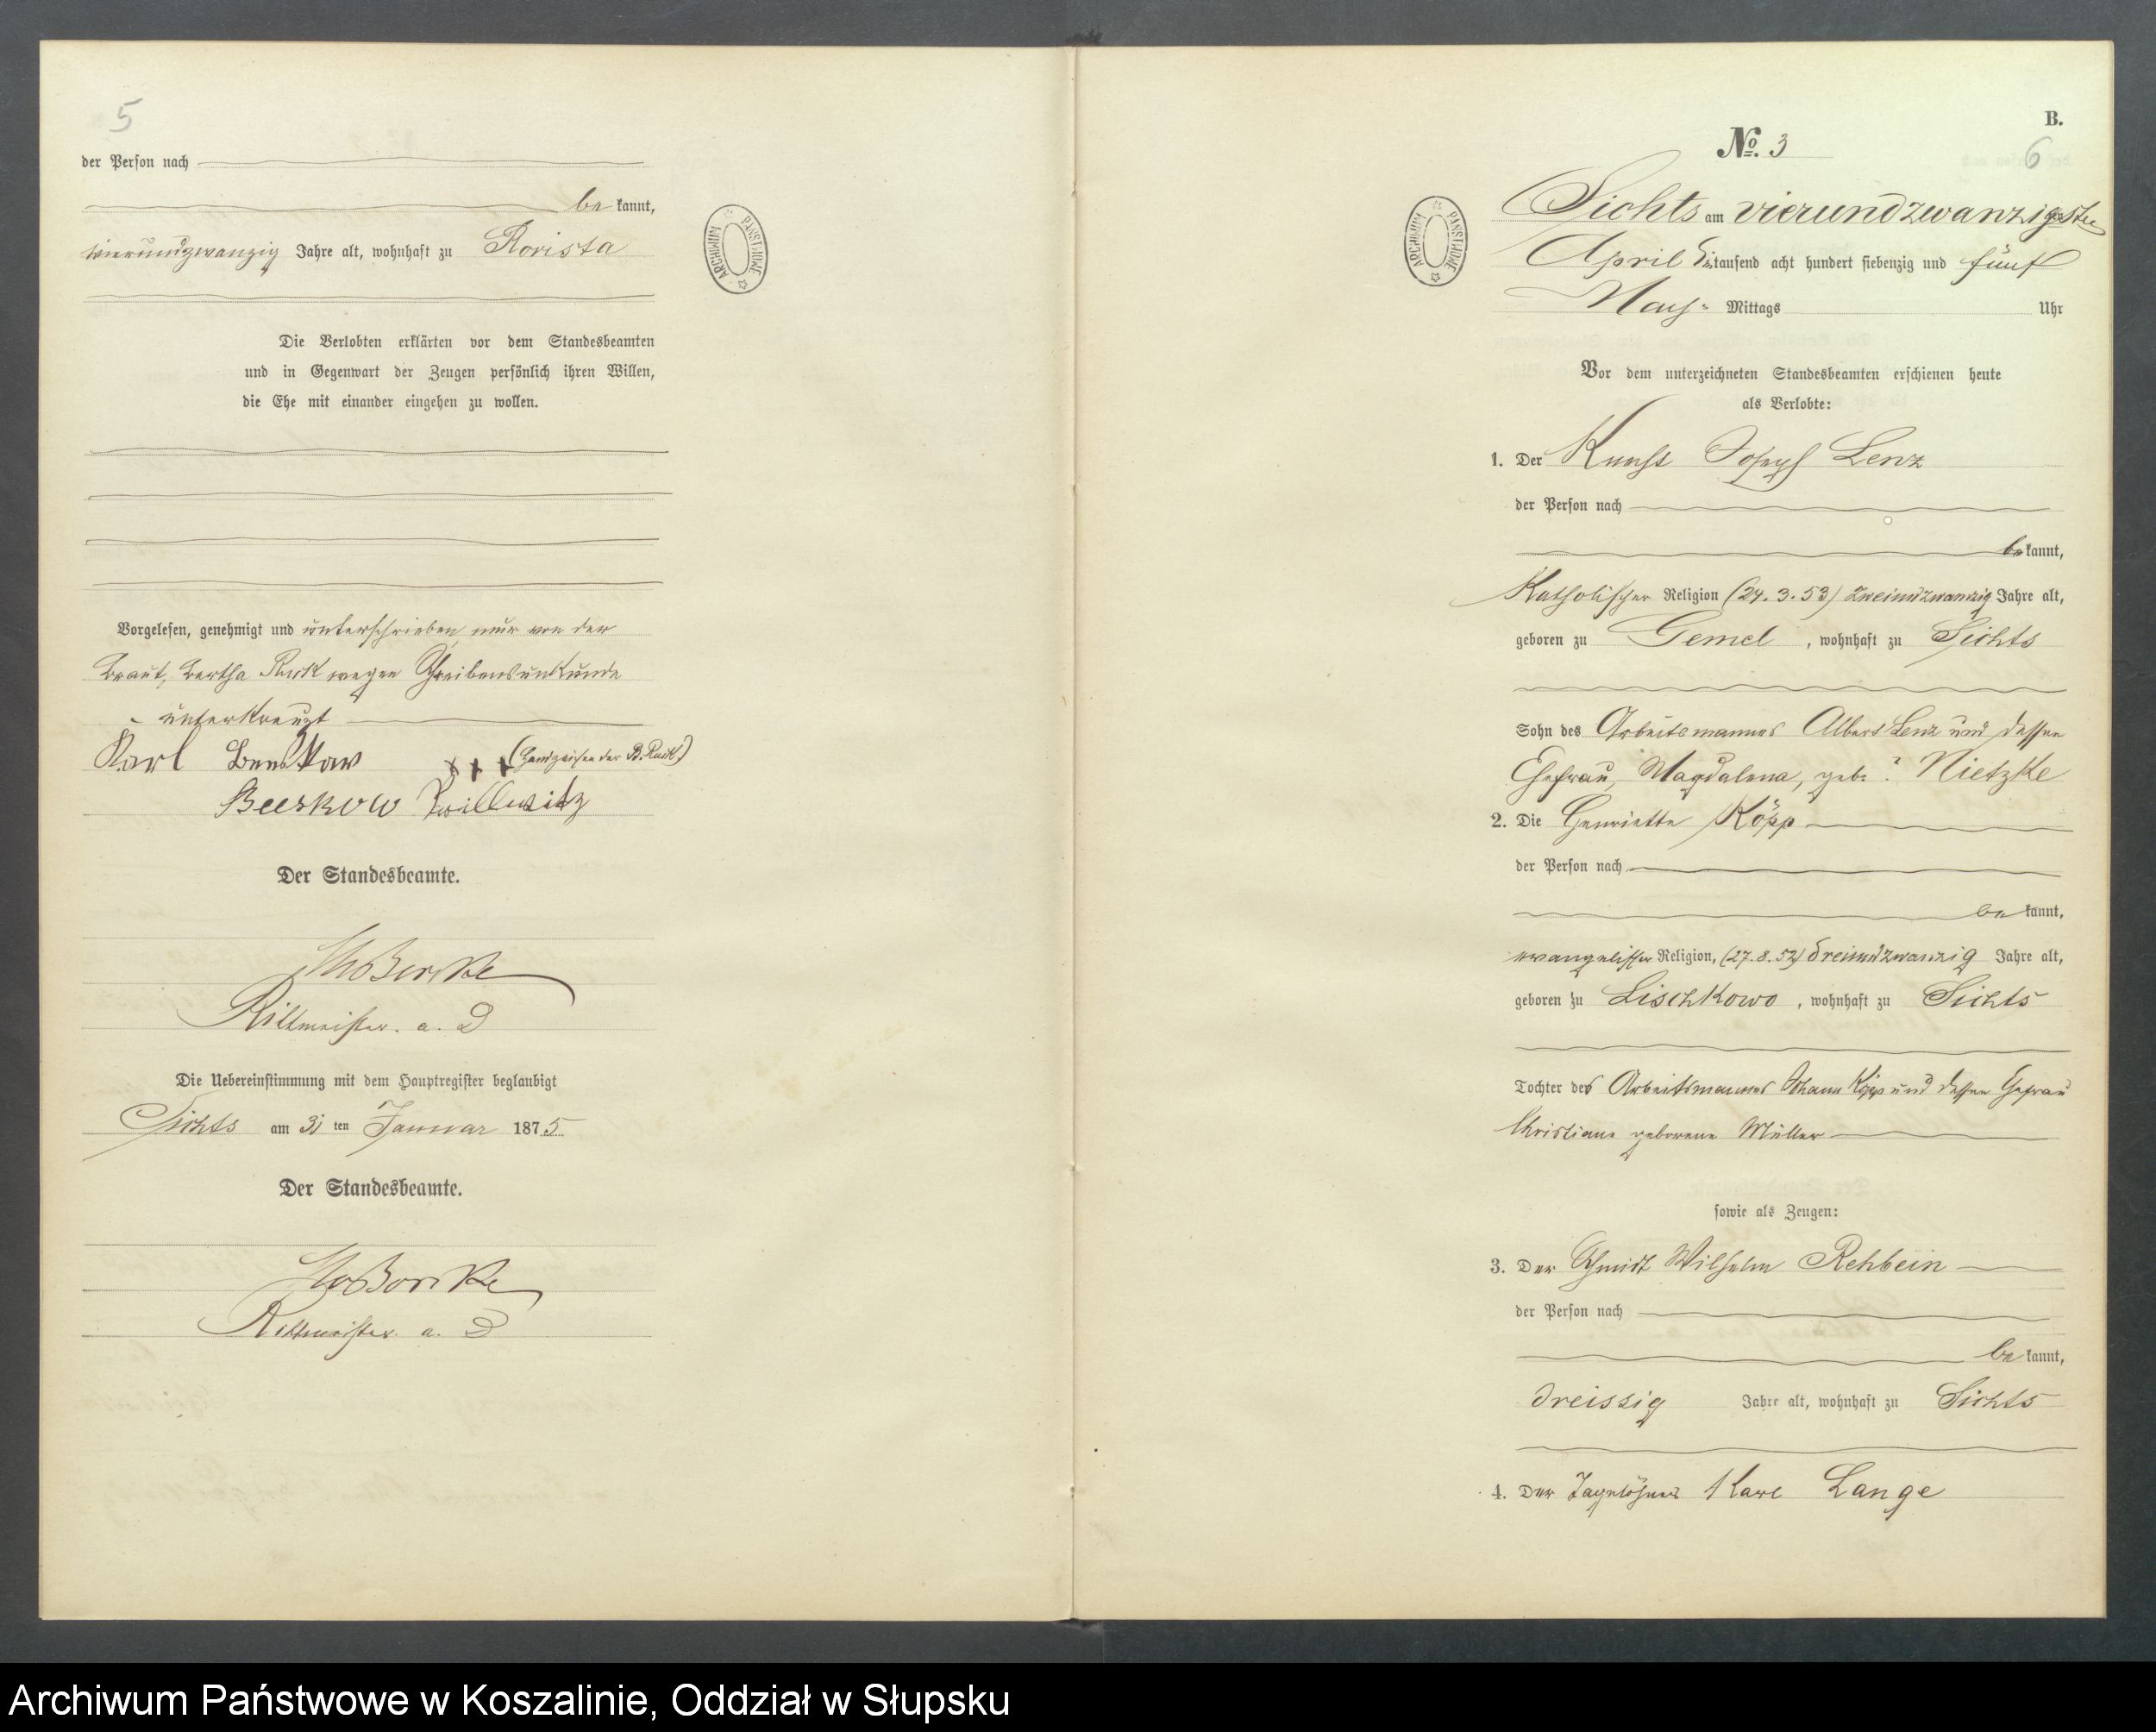 5
der Person nach
be kannt,
vierundzwanzig Jahre alt, wohnhaft zu Florista
Die Verlobten erklärten vor dem Standesbeamten
und in Gegenwart der Zeugen persönlich ihren Willen,
die Ehe mit einander eingehen zu wollen.
Vorgelesen, genehmigt und unterschrieben, nur von der
Braut, Bertha wegen Schreibensunkunde
unterkreuzt
Karl +++ (Handzeichen der B. )
Beeskow
Der Standesbeamte.
Rittmeister. a. D
Die Uebereinstimmung mit dem Hauptregister beglaubigt
Sichts am 31 ten Januar 1875.
Der Standesbeamte.
Rittmeister. a. D
ARCHIWUM PAŃSTWOWE
B.
No. 3
6
Sichts am vierundzwanzigsten
April Eintausend acht hundert siebenzig und fünf
Nach- Mittags Uhr
Vor dem unterzeichneten Standesbeamten erschienen heute
als Verlobte:
1. Der Knecht Joseph Lenz
der Person nach
be kannt,
Katholischer Religion (24. 3. 53) zweiundzwanzig Jahre alt,
geboren zu Gemel, wohnhaft zu Sichts
Sohn des Arbeitsmannes Albert Lenz und dessen
Ehefrau, Magdalena, geb. ? Nietzke
2. Die Henriette Köpp
der Person nach
be kannt,
evangelischer Religion, (27. 8. 52) dreiundzwanzig Jahre alt,
geboren zu Lischkowo, wohnhaft zu Sichts
Tochter des Arbeitsmannes Johann Köpp und dessen Ehefrau
Christiane geborene Müller
sowie als Zeugen:
3. Der Schmidt Wilhelm Rehbein
der Person nach
be kannt,
dreissig Jahre alt, wohnhaft zu Sichts
4. Der Tagelöhner Karl Lange
ARCHIWUM PAŃSTWOWE
Archiwum Państwowe w Koszalinie, Oddział w Słupsku